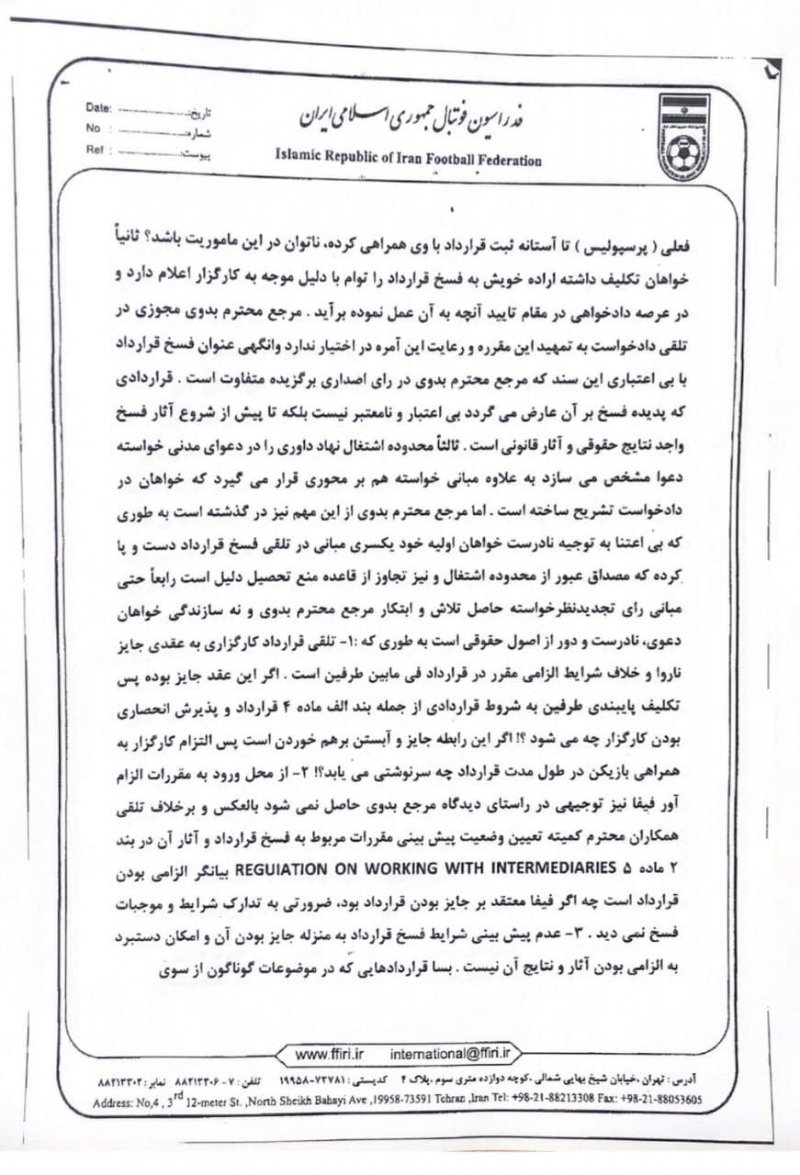 Date: ........ تاریخ:
No : ........ شماره:
Ref : ........ پیوست:
فدراسیون فوتبال جمهوری اسلامی ایران
Islamic Republic of Iran Football Federation
فعلی ( پرسپولیس ) تا آستانه ثبت قرارداد با وی همراهی کرده، ناتوان در این ماموریت باشد؟ ثانیاً
خواهان تکلیف داشته اراده خویش به فسخ قرارداد را توام با دلیل موجه به کارگزار اعلام دارد و
در عرصه دادخواهی در مقام تایید آنچه به آن عمل نموده برآید . مرجع محترم بدوی مجوزی در
تلقی دادخواست به تمهید این مقرره و رعایت این آمره در اختیار ندارد وانگهی عنوان فسخ قرارداد
با بی اعتباری این سند که مرجع محترم بدوی در رای اصداری برگزیده متفاوت است . قراردادی
که پدیده فسخ بر آن عارض می گردد بی اعتبار و نامعتبر نیست بلکه تا پیش از شروع آثار فسخ
واجد نتایج حقوقی و آثار قانونی است . ثالثاً محدوده اشتغال نهاد داوری را در دعوای مدنی خواسته
دعوا مشخص می سازد به علاوه مبانی خواسته هم بر محوری قرار می گیرد که خواهان در
دادخواست تشریح ساخته است . اما مرجع محترم بدوی از این مهم نیز در گذشته است به طوری
که بی اعتنا به توجیه نادرست خواهان اولیه خود یکسری مبانی در تلقی فسخ قرارداد دست و پا
کرده که مصداق عبور از محدوده اشتغال و نیز تجاوز از قاعده منع تحصیل دلیل است رابعاً حتی
مبانی رای تجدیدنظرخواسته حاصل تلاش و ابتکار مرجع محترم بدوی و نه سازندگی خواهان
دعوی، نادرست و دور از اصول حقوقی است به طوری که :۱- تلقی قرارداد کارگزاری به عقدی جایز
ناروا و خلاف شرایط الزامی مقرر در قرارداد فی مابین طرفین است . اگر این عقد جایز بوده پس
تکلیف پایبندی طرفین به شروط قراردادی از جمله بند الف ماده ۴ قرارداد و پذیرش انحصاری
بودن کارگزار چه می شود ؟! اگر این رابطه جایز و آبستن برهم خوردن است پس التزام کارگزار به
همراهی بازیکن در طول مدت قرارداد چه سرنوشتی می یابد؟! ۲- از محل ورود به مقررات الزام
آور فیفا نیز توجیهی در راستای دیدگاه مرجع بدوی حاصل نمی شود بالعکس و برخلاف تلقی
همکاران محترم کمیته تعیین وضعیت پیش بینی مقررات مربوط به فسخ قرارداد و آثار آن در بند
۲ ماده ۵ REGUIATION ON WORKING WITH INTERMEDIARIES بیانگر الزامی بودن
قرارداد است چه اگر فیفا معتقد بر جایز بودن قرارداد بود، ضرورتی به تدارک شرایط و موجبات
فسخ نمی دید . ۳- عدم پیش بینی شرایط فسخ قرارداد به منزله جایز بودن آن و امکان دستبرد
به الزامی بودن آثار و نتایج آن نیست . بسا قراردادهایی که در موضوعات گوناگون از سوی
www.ffiri.ir international@ffiri.ir
آدرس : تهران ،خیابان شیخ بهایی شمالی ،کوچه دوازده متری سوم ،پلاک ۴ کدپستی : ۷۳۷۸۱-۱۹۹۵۸ تلفن : ۷-۸۸۲۱۳۳۰۶ نمابر : ۸۸۲۱۳۳۰۲
Address: No,4 , 3rd 12-meter St. ,North Sheikh Bahayi Ave ,19958-73591 Tehran ,Iran Tel: +98-21-88213308 Fax: +98-21-88053605